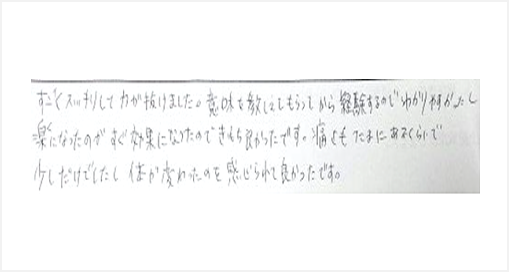 すごくスッキリして力が抜けました。意味を教えてもらってから経験するのでわかりやすかったし
楽になったのがすぐ効果になったのできもち良かったです。痛みもたまにあるくらいで
少しだけでしたし体が変わったのを感じられて良かったです。